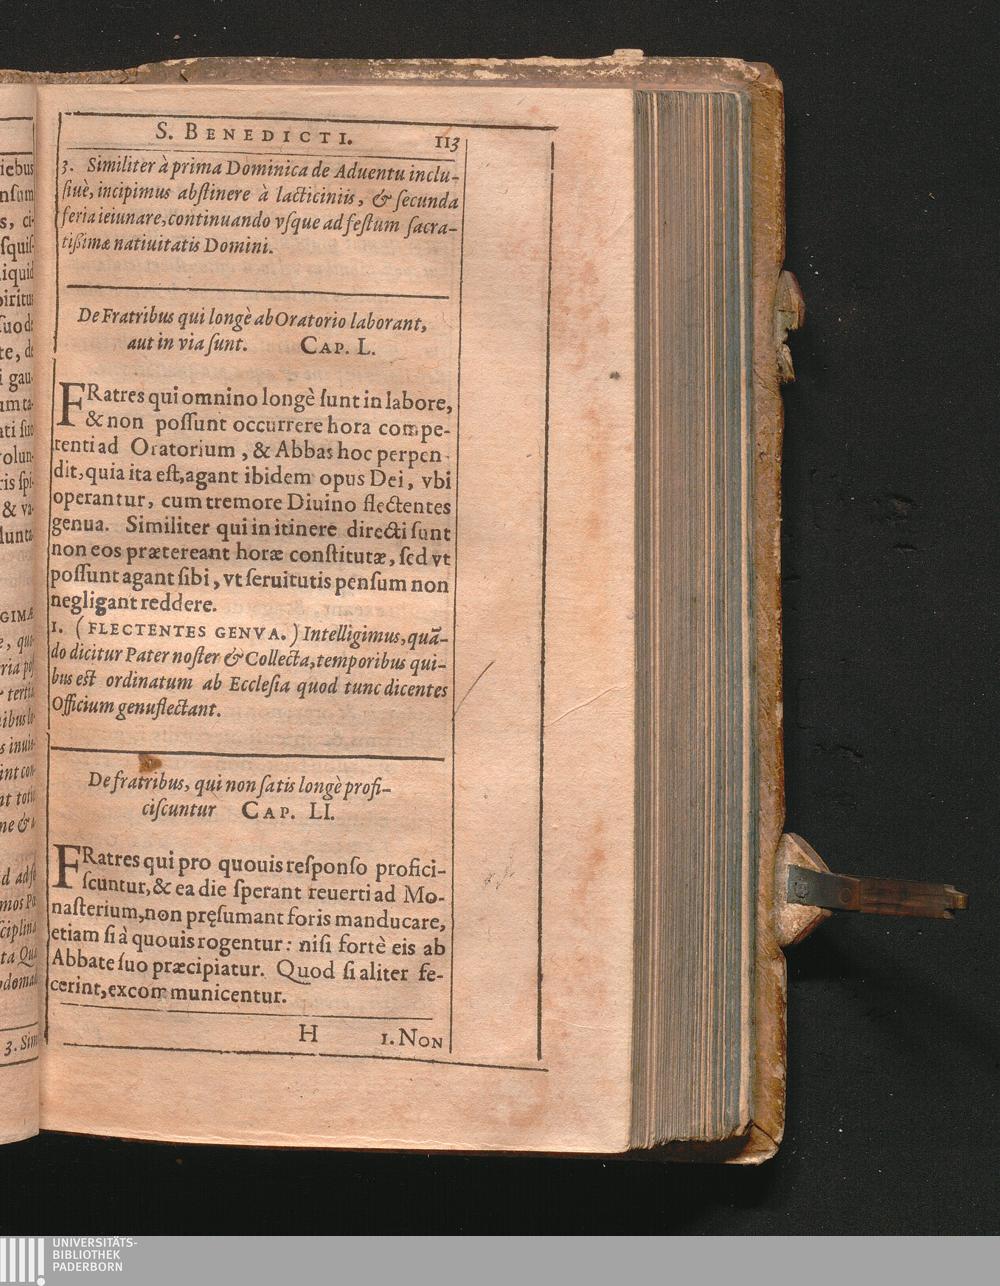 S. BENEDICTI. 113
3. Similiter à prima Dominica de Aduentu inclu-
siuè, incipimus abstinere à lacticiniis, & secunda
feria ieiunare, continuando vsque ad festum sacra-
tißimæ natiuitatis Domini.
De Fratribus qui longè ab Oratorio laborant,
aut in via sunt. CAP. L.
FRatres qui omnino longè sunt in labore,
& non possunt occurrere hora compe-
tenti ad Oratorium, & Abbas hoc perpen-
dit, quia ita est, agant ibidem opus Dei, vbi
operantur, cum tremore Diuino flectentes
genua. Similiter qui in itinere directi sunt
non eos prætereant horæ constitutæ, sed vt
possunt agant sibi, vt seruitutis pensum non
negligant reddere.
1. (FLECTENTES GENVA.) Intelligimus, quā-
do dicitur Pater noster & Collecta, temporibus qui-
bus est ordinatum ab Ecclesia quod tunc dicentes
Officium genuflectant.
De fratribus, qui non satis longè profi-
ciscuntur CAP. LI.
FRatres qui pro quouis responso profici-
scuntur, & ea die sperant reuerti ad Mo-
nasterium, non pręsumant foris manducare,
etiam si à quouis rogentur: nisi fortè eis ab
Abbate suo præcipiatur. Quod si aliter fe-
cerint, excommunicentur.
H 1. NON
3. Sim
UNIVERSITÄTS-
BIBLIOTHEK
PADERBORN